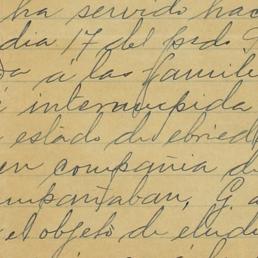 ha servido hac
dia 17 del psdo G
a las famili
interrumpida
estado de ebried
en compañia de
mpañaban, G. a
el objeto de eludi